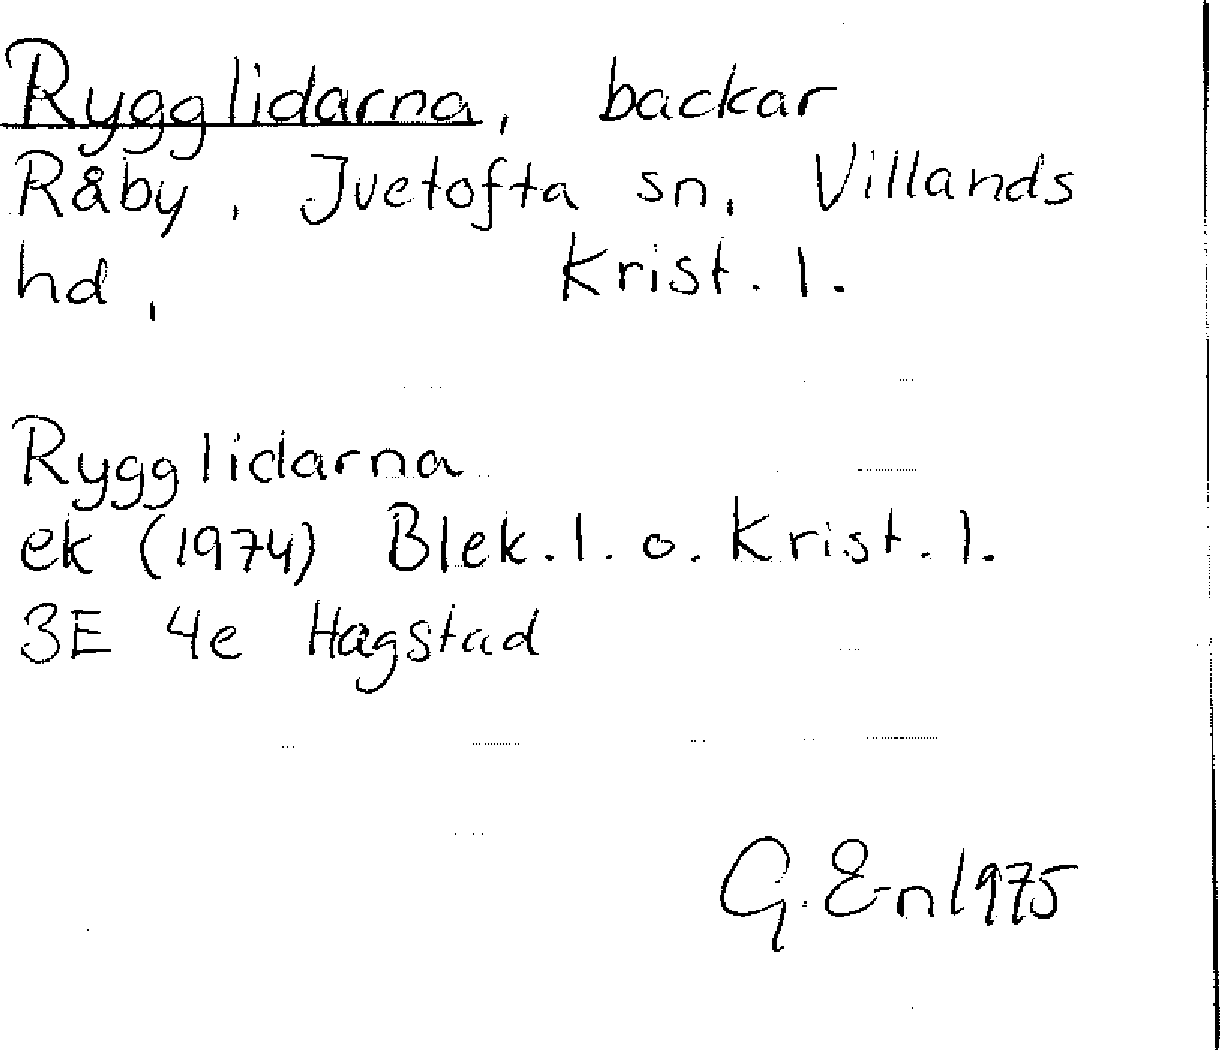 Rygglidarna, backar
Råby, Ivetofta sn, Villands
hd, Krist. l.
Rygglidarna
ek (1974) Blek. l. o. Krist. l.
3E 4e Hagstad
G. En 1975